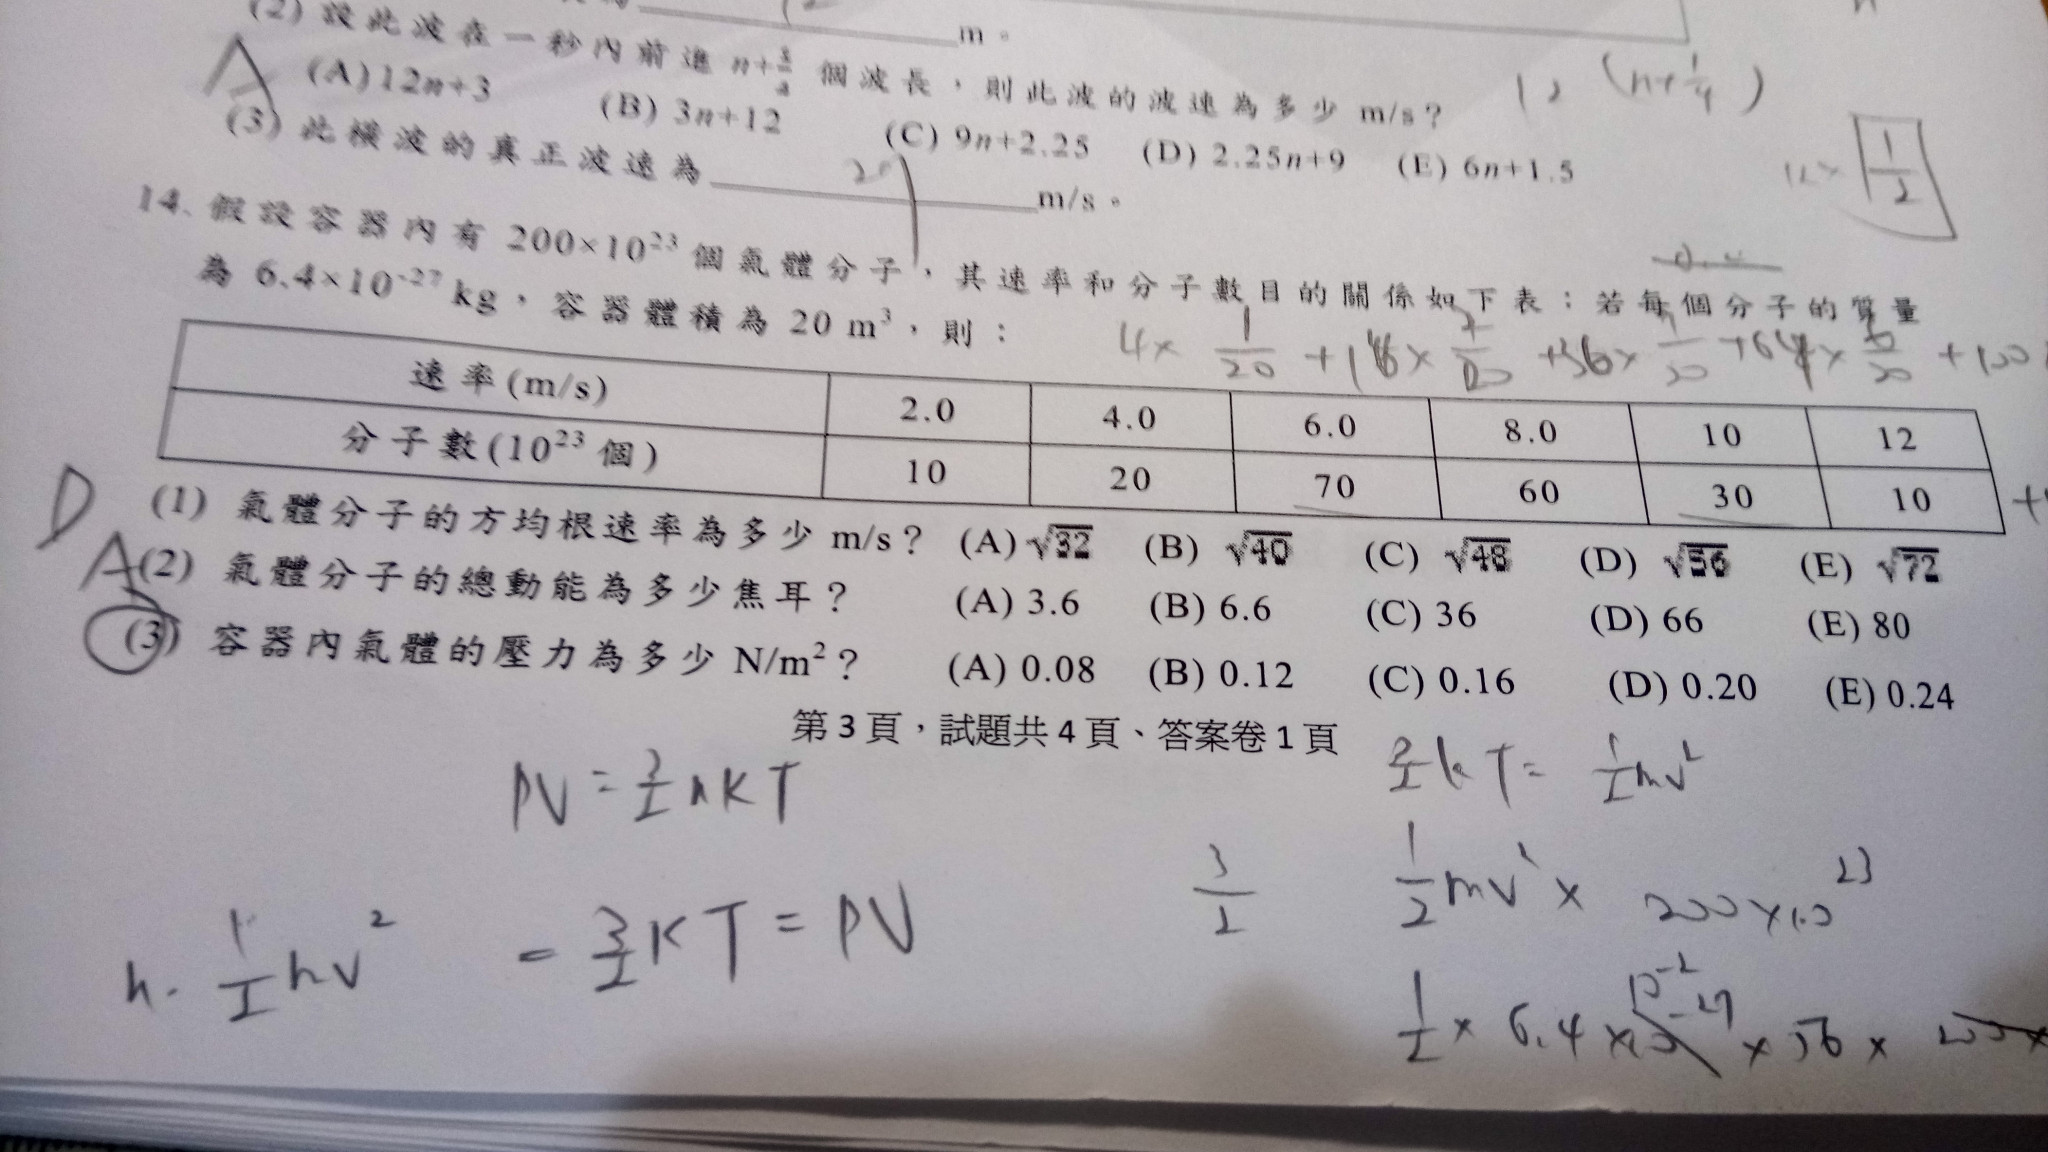 (2) 設此波在一秒內前進 n+ 個波長,則此波的波速為多少 m/s?
m。
(A)12n+3 (B) 3n+12 (C) 9n+2.25 (D) 2.25n+9 (E) 6n+1.5
A
12 (n+1/4)
1/2
(3) 此橫波的真正波速為 m/s。
14. 假設容器內有 200×10²³ 個氣體分子,其速率和分子數目的關係如下表:若每個分子的質量
為 6.4×10⁻²⁷ kg,容器體積為 20 m³,則:
速率(m/s) 2.0 4.0 6.0 8.0 10 12
分子數(10²³ 個) 10 20 70 60 30 10
D
(1) 氣體分子的方均根速率為多少 m/s? (A) √32 (B) √40 (C) √48 (D) √56 (E) √72
A
(2) 氣體分子的總動能為多少焦耳? (A) 3.6 (B) 6.6 (C) 36 (D) 66 (E) 80
(3) 容器內氣體的壓力為多少 N/m²? (A) 0.08 (B) 0.12 (C) 0.16 (D) 0.20 (E) 0.24
第 3 頁,試題共 4 頁、答案卷 1 頁
PV = 3/2 nKT
3/2 kT = 1/2 mv²
3/2
1/2 mv² × 200×10²³
= 3/2 KT = PV